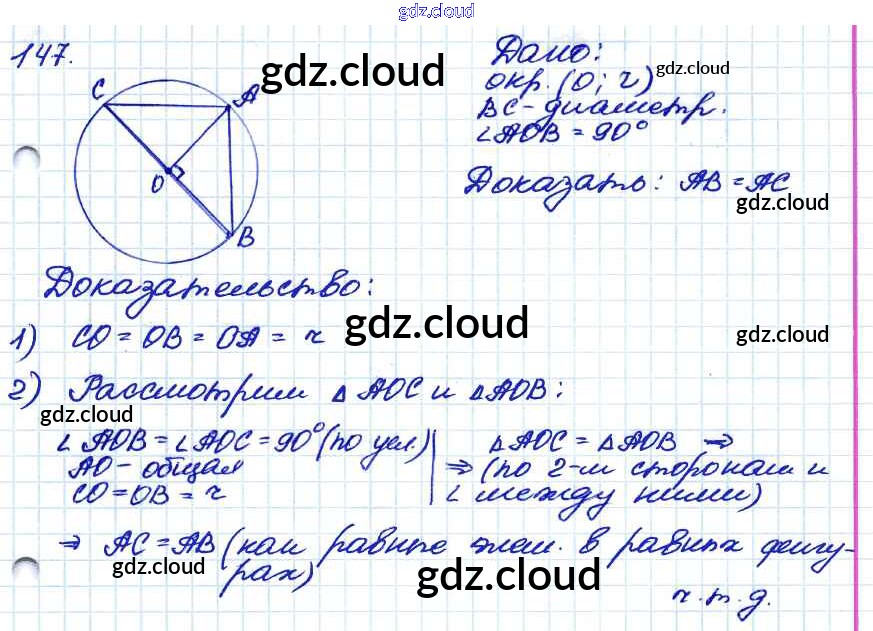 gdz.cloud
147.
Дано:
gdz.cloud
окр. (O; r)
gdz.cloud
C
A
BC - диаметр.
∠AOB = 90°
O
Доказать: AB = AC
gdz.cloud
B
Доказательство:
1) CO = OB = OA = r
gdz.cloud
gdz.cloud
2) Рассмотрим △ AOC и △AOB:
gdz.cloud
∠ AOB = ∠ AOC = 90° (по усл.)
AO - общая
CO = OB = r
△ AOC = △ AOB ⇒
⇒ (по 2-м сторонам и
∠ между ними)
⇒ AC = AB (как равные элем. в равных фигу-
gdz.cloud
рах)
gdz.cloud
ч.т.д.